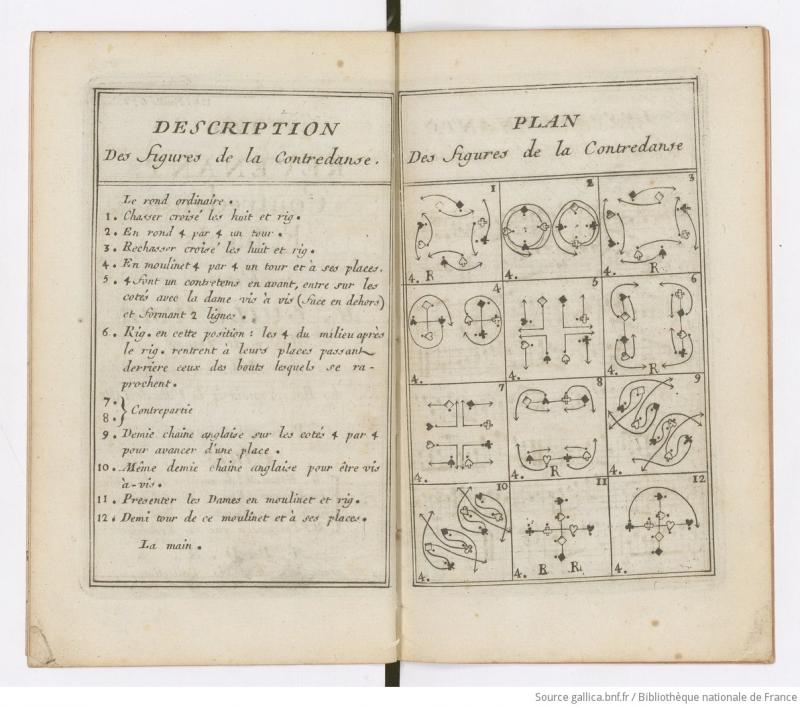 DESCRIPTION
Des figures de la Contredanse.
Le rond ordinaire.
1. Chasser croisé les huit et rig.
2. En rond 4 par 4 un tour.
3. Rechasser croisé les huit et rig.
4. En moulinet 4 par 4 un tour et à ses places.
5. 4 font un contretems en avant, entre sur les
cotés avec la dame vis à vis (face en dehors)
et formant 2 lignes.
6. Rig. en cette position: les 4 du milieu après
le rig. rentrent à leurs places passant
derriere ceux des bouts lesquels se ra-
prochent.
7.
8. } Contrepartie
9. Demie chaine anglaise sur les cotés 4 par 4
pour avancer d'une place.
10. Même demie chaine anglaise pour être vis
à-vis.
11. Presenter les Dames en moulinet et rig.
12. Demi tour de ce moulinet et à ses places.
La main.
PLAN
Des figures de la Contredanse
1 2 3
4. R 4. 4. R
4 5 6
4. 4. R
7 8 9
4. 4. R 4.
10 11 12
4. R R 4.
Source gallica.bnf.fr / Bibliothèque nationale de France